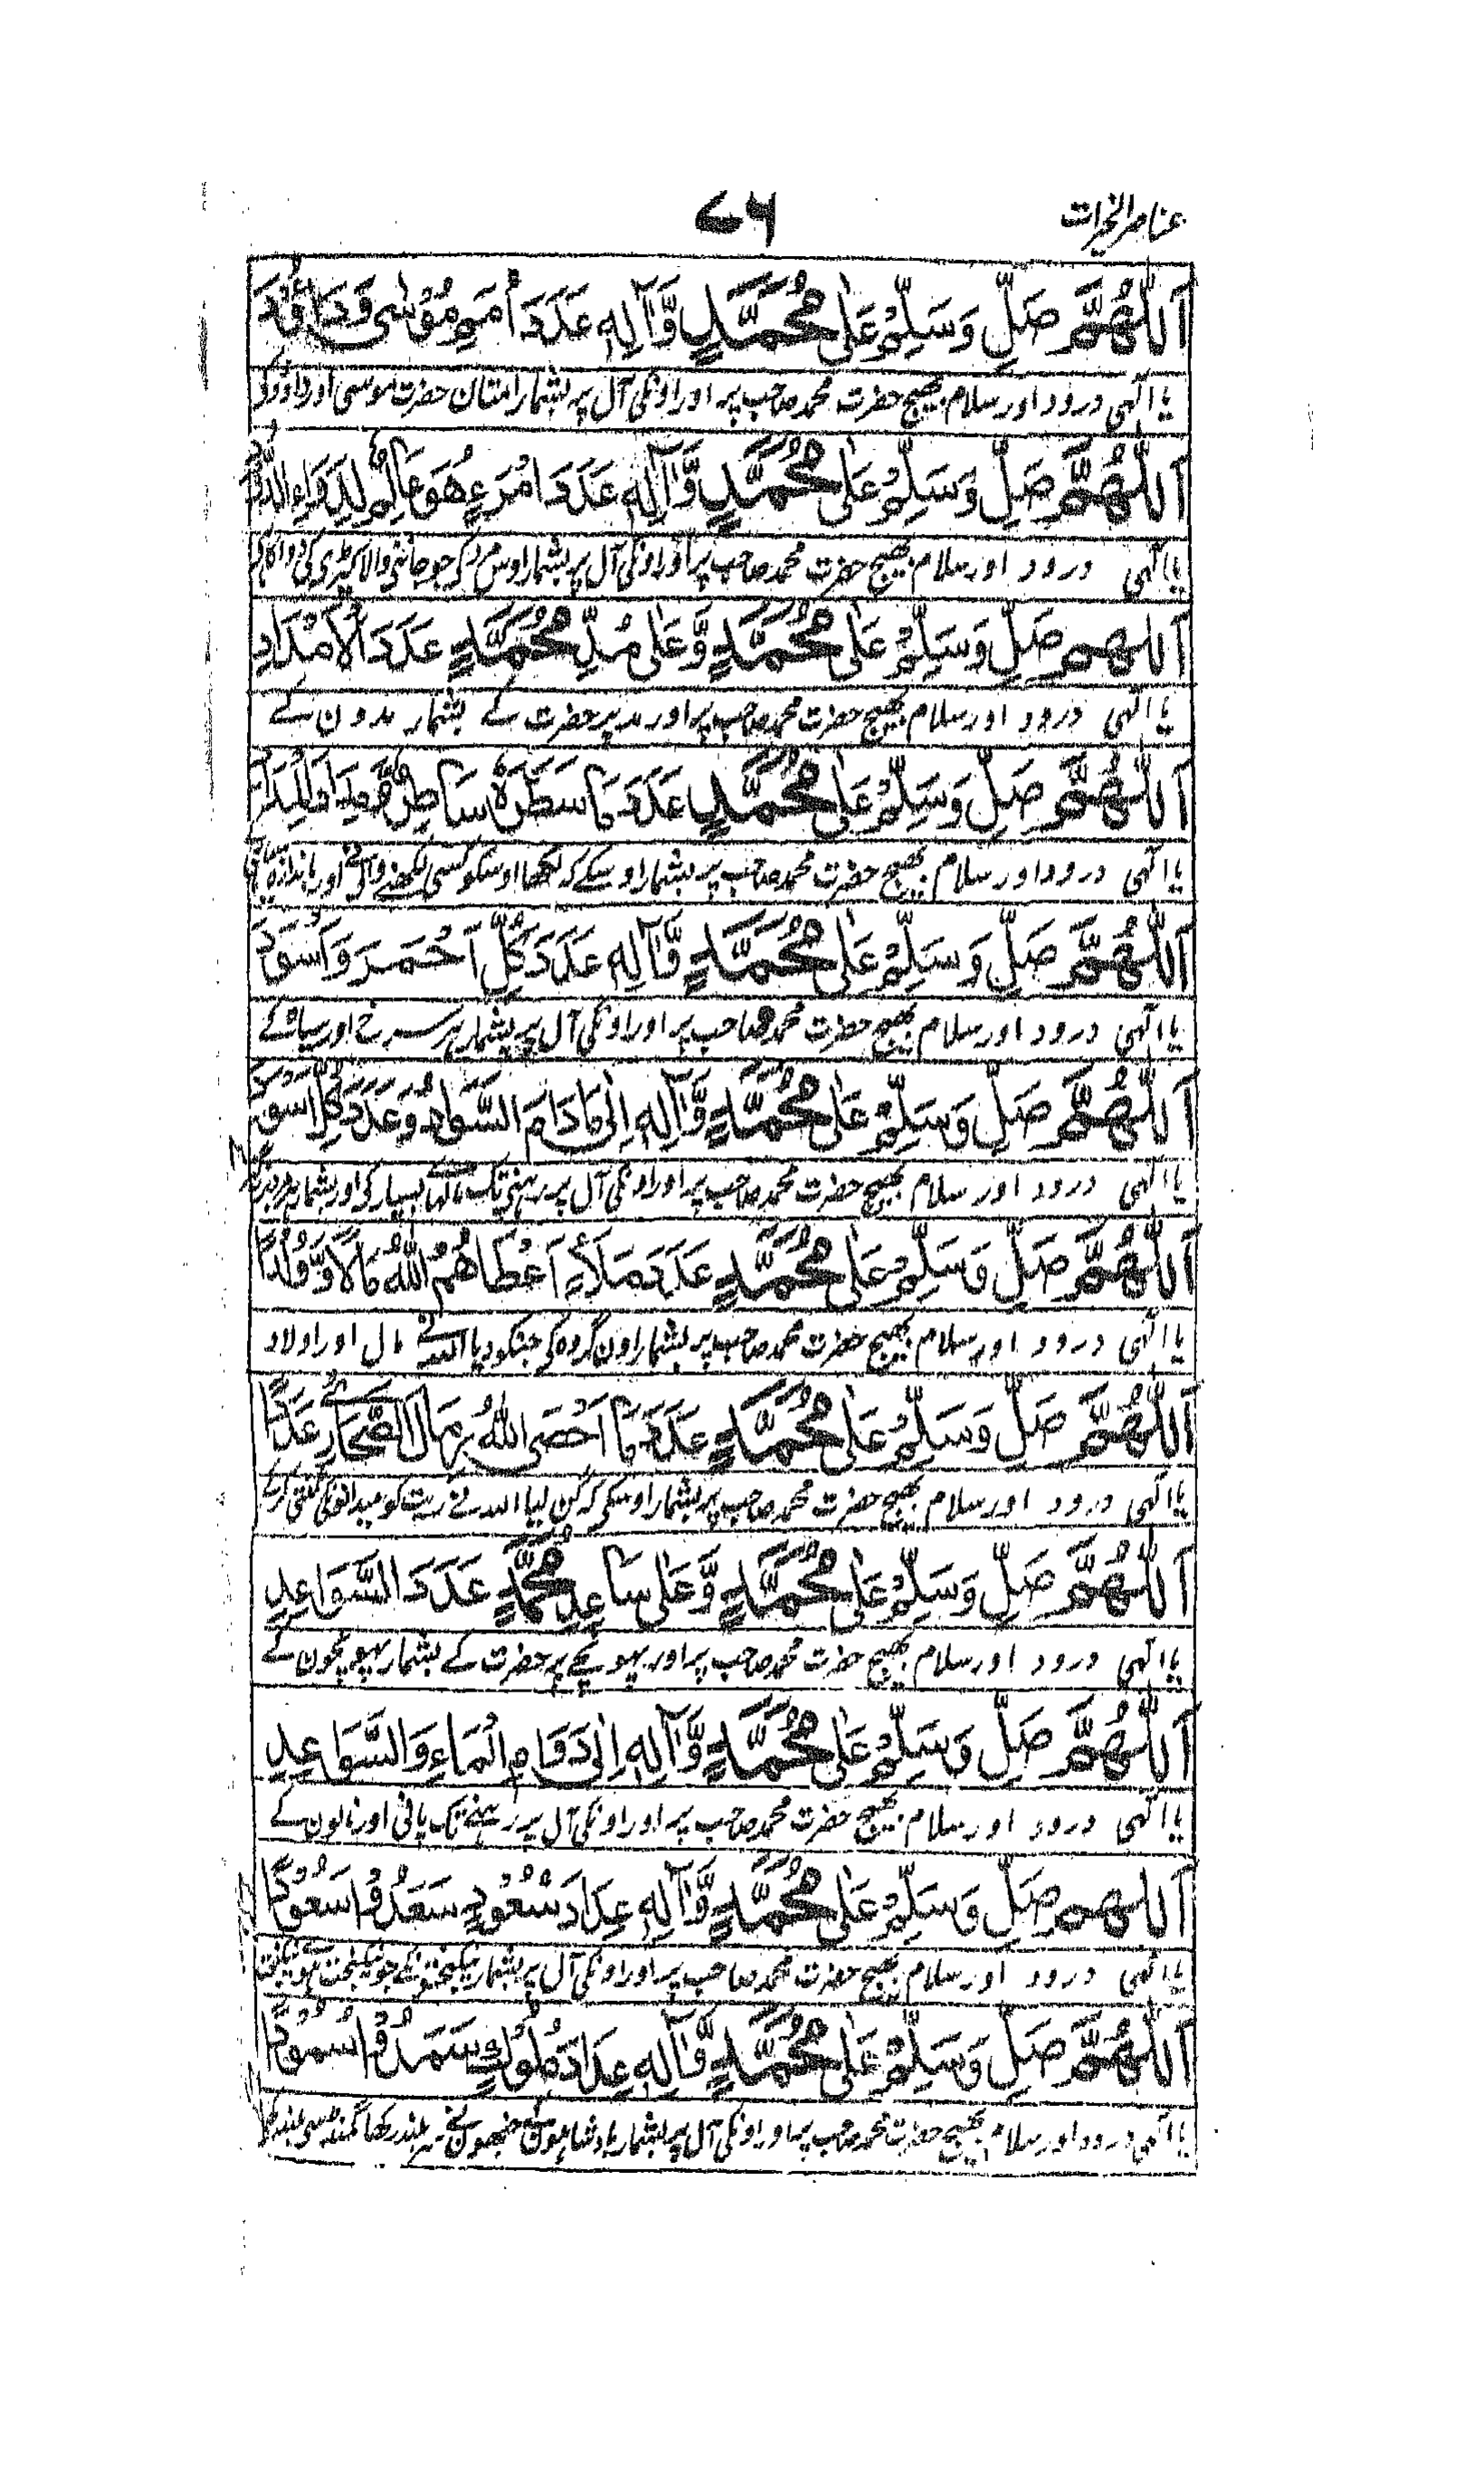 عناصر الخیرات
۷۶
اَللّٰهُمَّ صَلِّ وَسَلِّمْ عَلٰى مُحَمَّدٍ وَّاٰلِهٖ عَدَدَ اُمَمِ مُوْسٰى وَدَاوٗدَ
یا الٰہی درود اور سلام بھیج حضرت محمد صاحب پر اور اونکی آل پر بشمار امتان حضرت موسی اور داؤد کی
اَللّٰهُمَّ صَلِّ وَسَلِّمْ عَلٰى مُحَمَّدٍ وَّاٰلِهٖ عَدَدَ امْرَءٍ هُوَ عَالِمٌ
یا الٰہی درود اور سلام بھیج حضرت محمد صاحب پر اور اونکی آل پر بشمار اوس مرد کی جو جاننے والا
اَللّٰهُمَّ صَلِّ وَسَلِّمْ عَلٰى مُحَمَّدٍ وَّعَلٰى مُدِّ مُحَمَّدٍ عَدَدَ الْاَمْدَادِ
یا الٰہی درود اور سلام بھیج حضرت محمد صاحب پر اور مد پر حضرت کے بشمار مدون کے
اَللّٰهُمَّ صَلِّ وَسَلِّمْ عَلٰى مُحَمَّدٍ عَدَدَ مَا سَطَرَهٗ سَاطِرٌ
یا الٰہی درود اور سلام بھیج حضرت محمد صاحب پر بشمار اوسکے کہ لکھا اوسکو کسی لکھنے والے
اَللّٰهُمَّ صَلِّ وَسَلِّمْ عَلٰى مُحَمَّدٍ وَّاٰلِهٖ عَدَدَ كُلِّ اَحْمَرَ وَاَسْوَدَ
یا الٰہی درود اور سلام بھیج حضرت محمد صاحب پر اور اونکی آل پر بشمار ہر سرخ اور سیاہ کے
اَللّٰهُمَّ صَلِّ وَسَلِّمْ عَلٰى مُحَمَّدٍ وَّاٰلِهٖ اِلٰى مَا دَامَ وَعَدَدَ كُلِّ
یا الٰہی درود اور سلام بھیج حضرت محمد صاحب پر اور اونکی آل پر رہنے تک اور بشمار
اَللّٰهُمَّ صَلِّ وَسَلِّمْ عَلٰى مُحَمَّدٍ عَدَدَ مَلَاءٍ اَعْطَاهُمُ اللّٰهُ مَالًا وَّوَلَدًا
یا الٰہی درود اور سلام بھیج حضرت محمد صاحب پر بشمار اون گروہ کی جنکو دیا اللہ نے مال اور اولاد
اَللّٰهُمَّ صَلِّ وَسَلِّمْ عَلٰى مُحَمَّدٍ عَدَدَ مَا اَحْصَى اللّٰهُ رِمَالَ الصَّحَارِىْ عَدًّا
یا الٰہی درود اور سلام بھیج حضرت محمد صاحب پر بشمار اوسکی کہ گن لیا اللہ نے ریت کو میدانونکی گنتی کرکے
اَللّٰهُمَّ صَلِّ وَسَلِّمْ عَلٰى مُحَمَّدٍ وَّعَلٰى سَاعِدِ مُحَمَّدٍ عَدَدَ السَّوَاعِدِ
یا الٰہی درود اور سلام بھیج حضرت محمد صاحب پر اور پہونچے پر حضرت کے بشمار پہونچون کے
اَللّٰهُمَّ صَلِّ وَسَلِّمْ عَلٰى مُحَمَّدٍ وَّاٰلِهٖ اِلٰى دَوَامِ الْمَاءِ وَالسَّوَاعِدِ
یا الٰہی درود اور سلام بھیج حضرت محمد صاحب پر اور اونکی آل پر رہنے تک پانی اور نالون کے
اَللّٰهُمَّ صَلِّ وَسَلِّمْ عَلٰى مُحَمَّدٍ وَّاٰلِهٖ عِدَادَ سُعُوْدٍ سَعَدُوْا سَعُوْدًا
یا الٰہی درود اور سلام بھیج حضرت محمد صاحب پر اور اونکی آل پر بشمار نیکبختونکے جو نیکبخت
اَللّٰهُمَّ صَلِّ وَسَلِّمْ عَلٰى مُحَمَّدٍ وَّاٰلِهٖ عِدَادَ مُلُوْكٍ سَمَدُوْا سُمُوْدًا
یا الٰہی درود اور سلام بھیج حضرت محمد صاحب پر اور اونکی آل پر بشمار بادشاہون کے جنھون نے سر بلند رکھا گھمنڈ سی